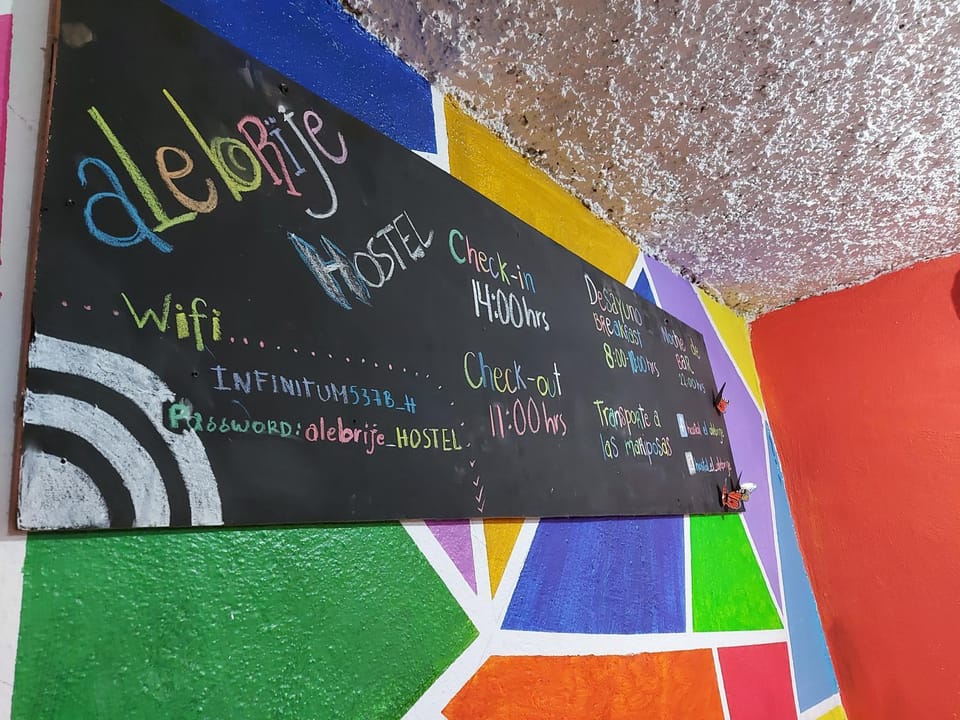 alebrije
HOSTEL
Wifi
INFINITUM537B_H
PASSWORD: alebrije_HOSTEL
Check-in
14:00hrs
Check-out
11:00hrs
Desayuno
BREAKFAST
8:00-11:00hrs
Noche de
BAR
22:00hrs
Transporte a
las mariposas
hostal el alebrije
hostal_el_alebrije